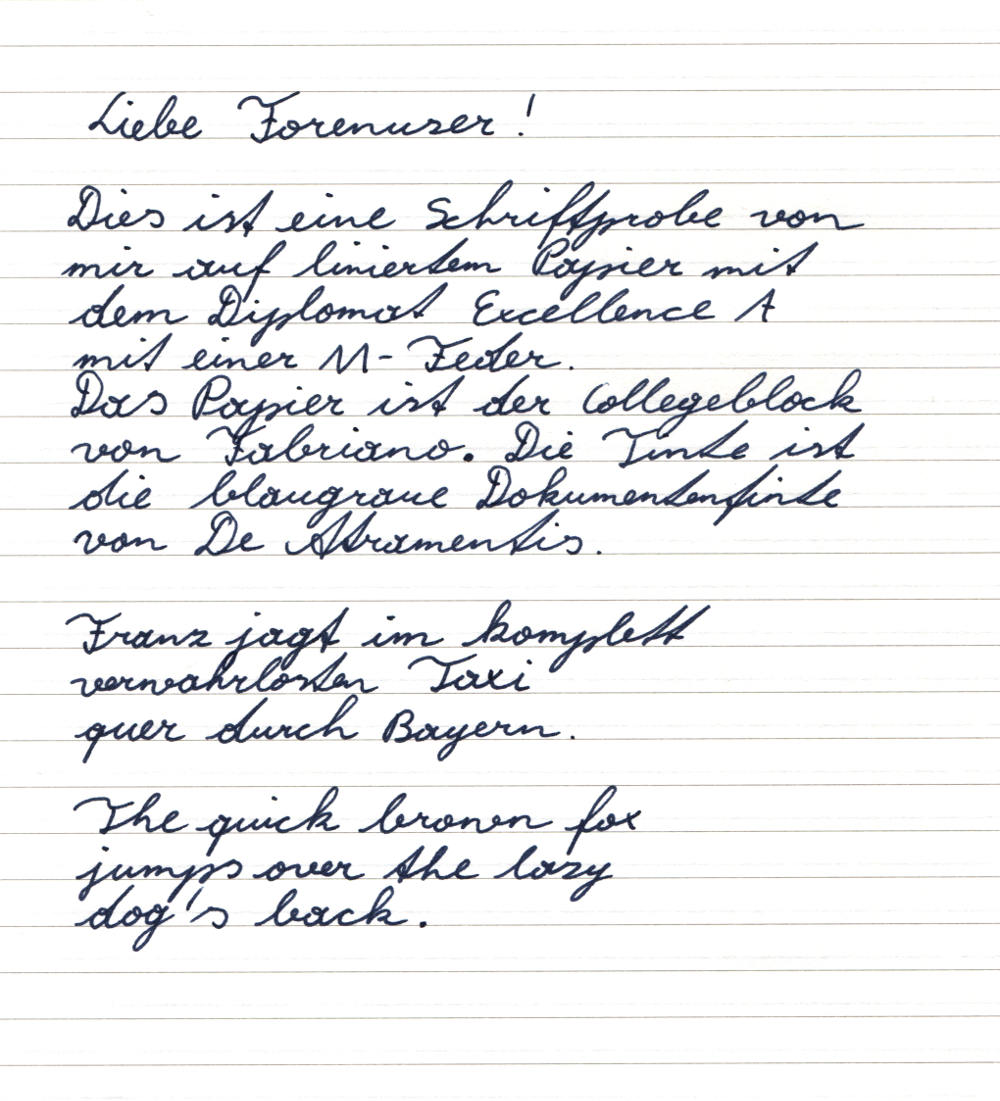 Liebe Forenuser!
Dies ist eine Schriftprobe von
mir auf liniertem Papier mit
dem Diplomat Excellence A
mit einer M-Feder.
Das Papier ist der Collegeblock
von Fabriano. Die Tinte ist
die blaugraue Dokumententinte
von De Atramentis.
Franz jagt im komplett
verwahrlosten Taxi
quer durch Bayern.
The quick brown fox
jumps over the lazy
dog's back.